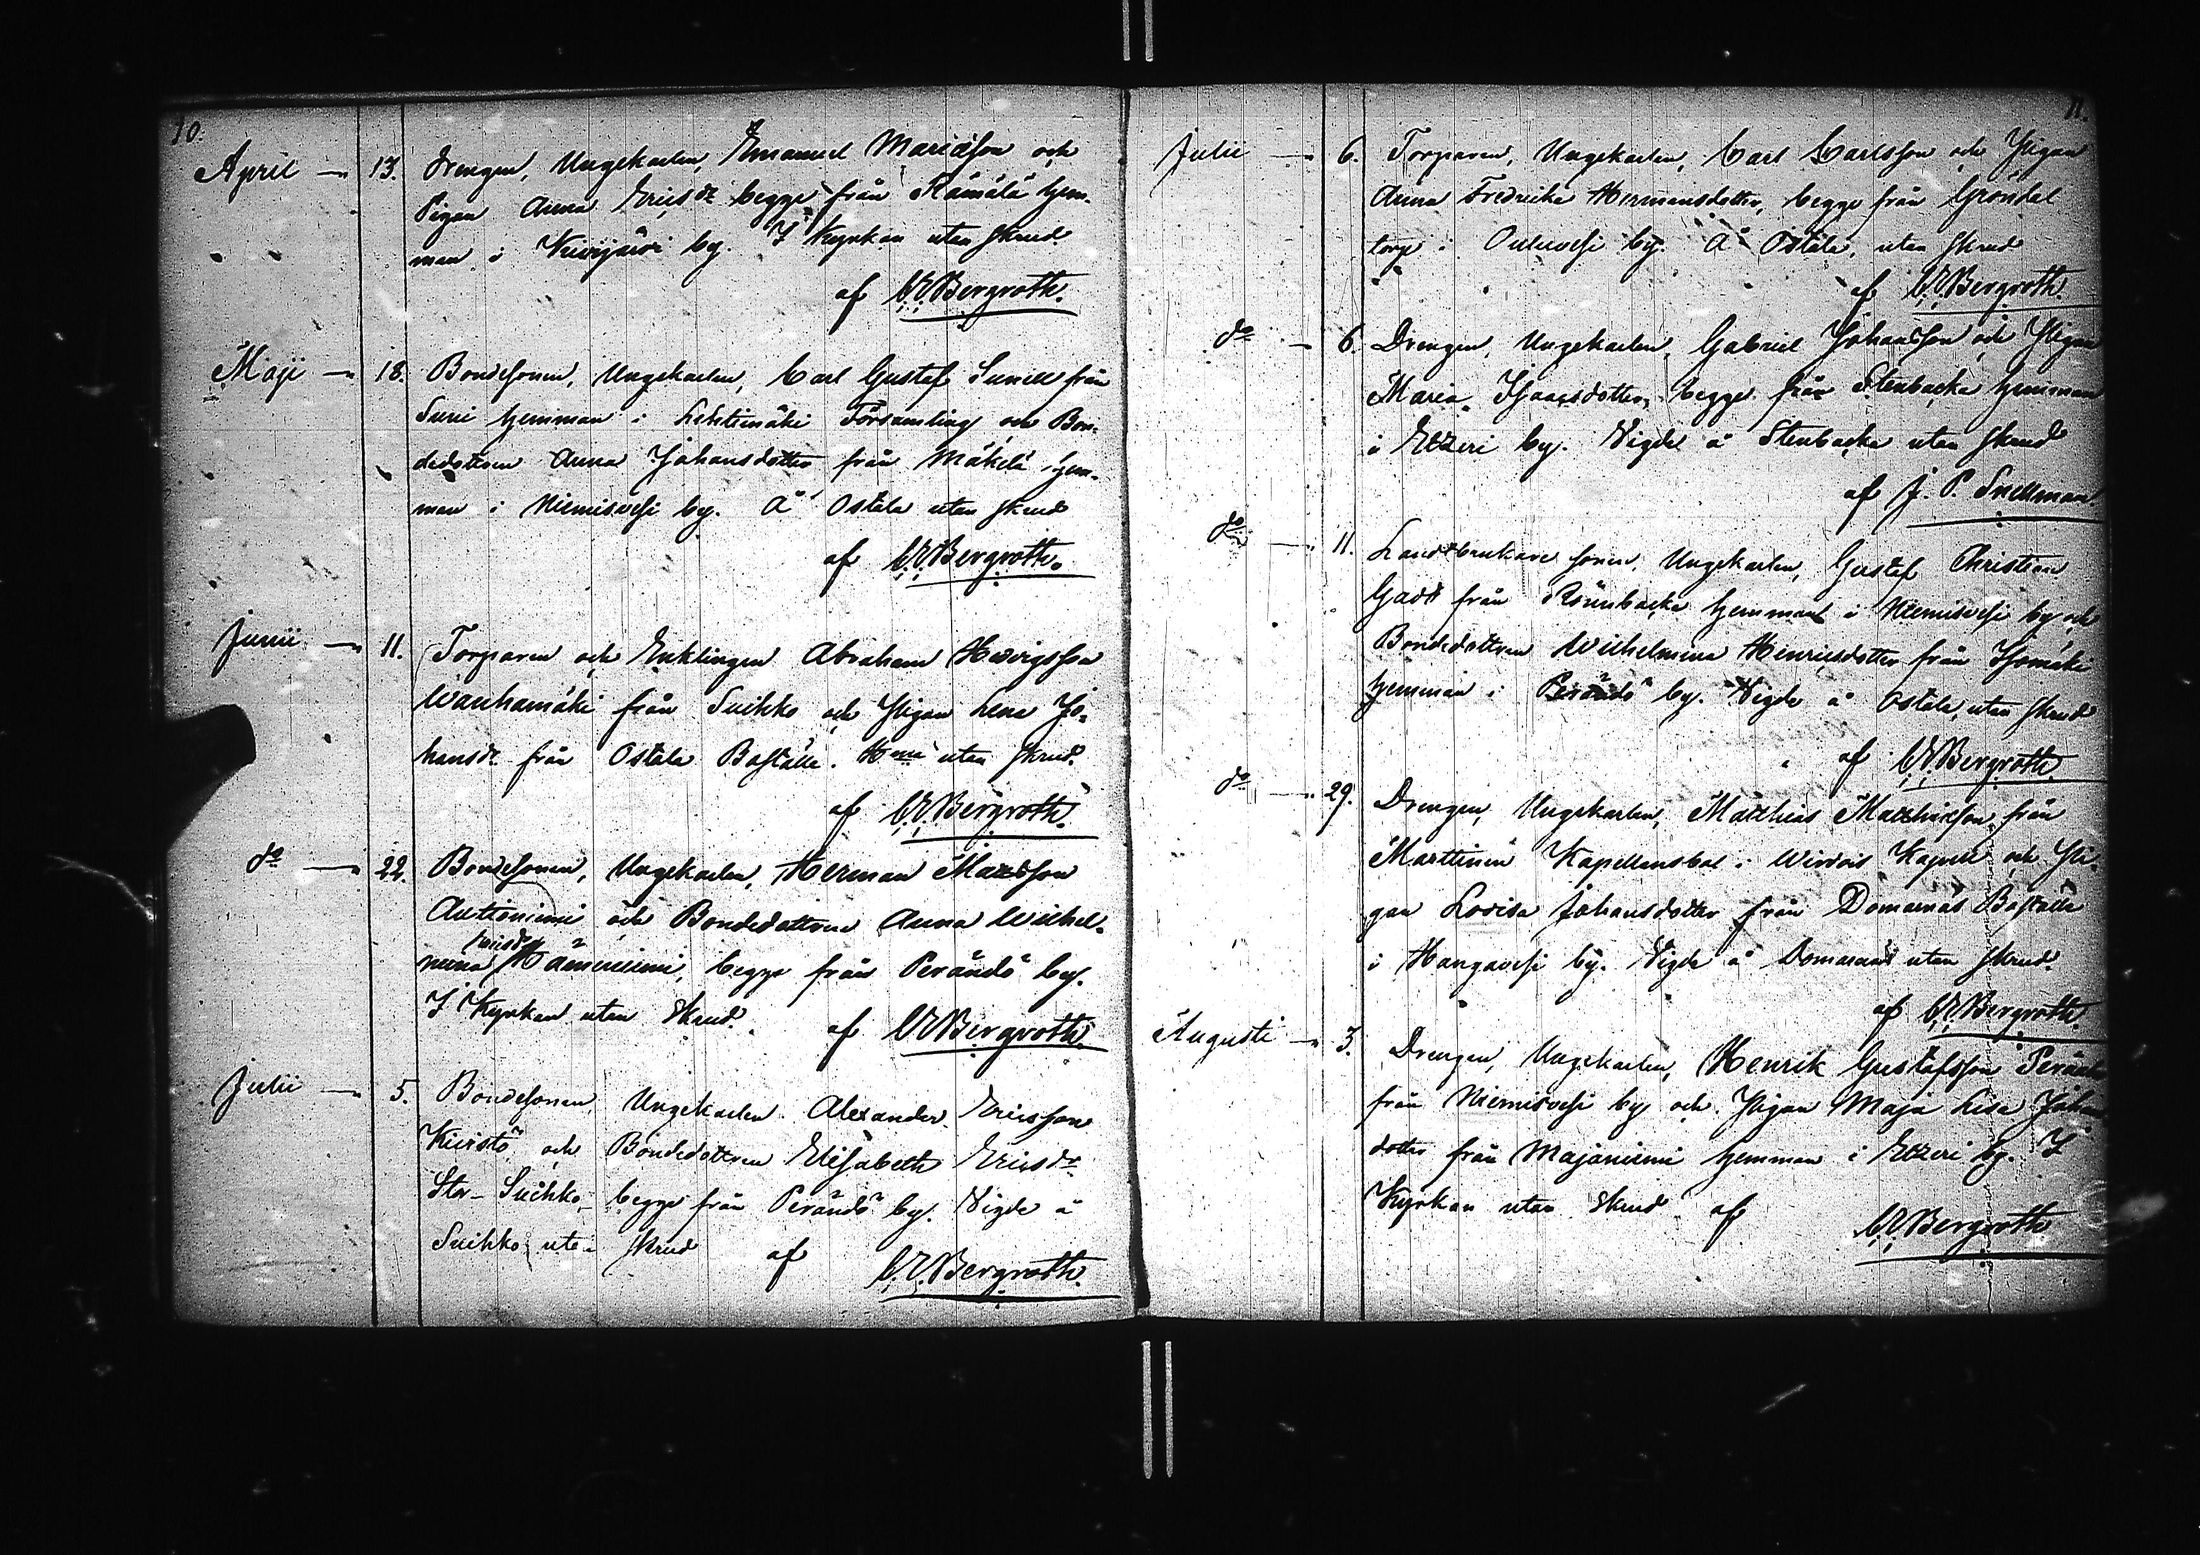 10.
April — 13. Drengen, Ungekarlen, Emanuel Mariæson och
Pigan Anna Ericsdr begge från Rämälä hem-
man i Kivijärvi by. I Kyrkan utan skrud.
af C.E.Bergroth.
Maji — 18. Bondesonen, Ungekarlen, Carl Gustef Sunell från
Suni hemman i Lehtimäki Församling och Bon-
dedottren Anna Johansdotter från Mäkelä hem-
man i Niemisvesi by. Å Ostola utan skrud
af C.E.Bergroth.
Junii — 11. Torparen och Enklingen Abraham Hedvigsson
Wanhamäki från Suihko och Pigan Lena Jo-
hansdr från Ostola Boställe. Hma utan skrud.
af C.E.Bergroth.
do — 22. Bondesonen, Ungekarlen, Herman Mattsson
Autioniemi och Bondedottren Anna Wilhel-
mina Hämeniemi, begge från Perändö by.
I Kyrkan utan skrud. af C.E.Bergroth.
Julii — 5. Bondesonen, Ungekarlen Alexander Ericsson
Kivistö och Bondedottren Elisabeth Ericsdr
Stor-Suihko, begge från Perändö by. Vigde å
Suihko utan skrud af
C.E.Bergroth.
11.
Julii — 6. Torparen, Ungekarlen, Carl Carlsson och Pigan
Anna Fredrika Hermansdotter, begge från Gröndal
torp i Ouluvesi by. Å Ostola, utan skrud
af C.E.Bergroth.
do — 6. Drengen, Ungekarlen, Gabriel Johansson och Pigan
Maria Isaacsdotter, begge från Stenbacka hemman
i Etzeri by. Vigde å Stenbacka utan skrud
af J. P. Snellman
do — 11. Landtbrukare sonen, Ungekarlen, Gustef Christian
Gadd från Rönnbacka hemman i Niemisvesi by och
Bondedottren Wilhelmina Henricsdotter från Isomäki
hemman i Perändö by. Vigde å Ostola, utan skrud
af C.E.Bergroth.
do — 29. Drengen, Ungekarlen, Matthias Matthiæson från
Marttinen Kapellansbol i Wirdois Kapell och Pi-
gan Lovisa Johansdotter från Domarnäs Boställe
i Hangavesi by. Vigde å Domarnäs utan skrud.
af C.E.Bergroth.
Augusti — 3. Drengen, Ungekarlen, Henrik Gustafsson
från Niemisvesi by och Pigan Maja Lisa Johans
dotter från Majaniemi hemman i Etzeri by. I
Kyrkan utan skrud af
C.E.Bergroth